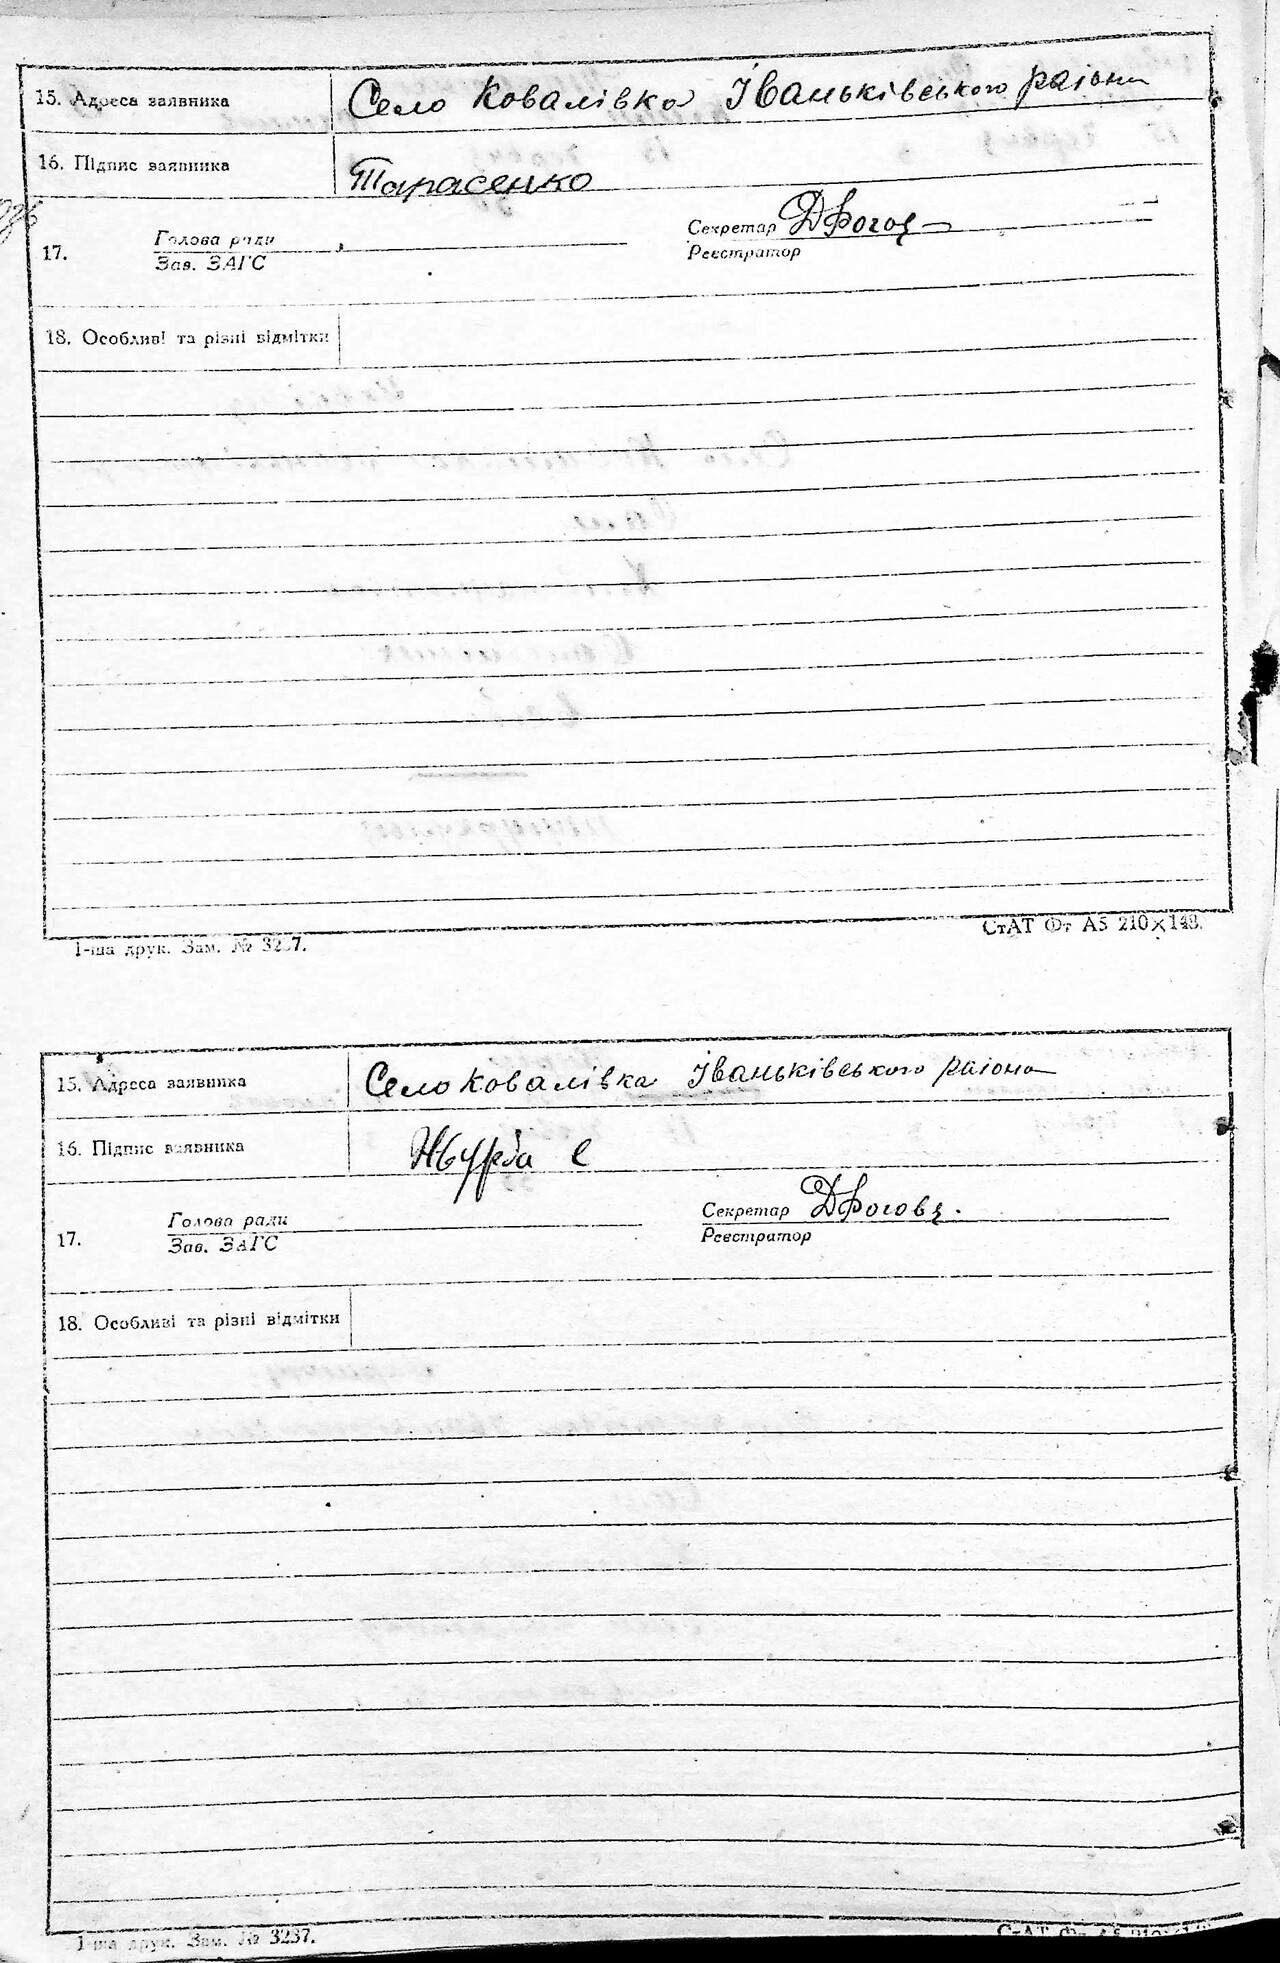 15. Адреса заявника Село Ковалівка Іваньківського раіона
16. Підпис заявника Тарасенко
17. Голова ради Секретар
Зав. ЗАГС Реєстратор
18. Особливі та різні відмітки
1-ша друк. Зам. № 3237. СтАТ Фт А5 210×148.
15. Адреса заявника Село Ковалівка Іваньківського раіона
16. Підпис заявника Журба Є
17. Голова ради Секретар
Зав. ЗАГС Реєстратор
18. Особливі та різні відмітки
1-ша друк. Зам. № 3237.